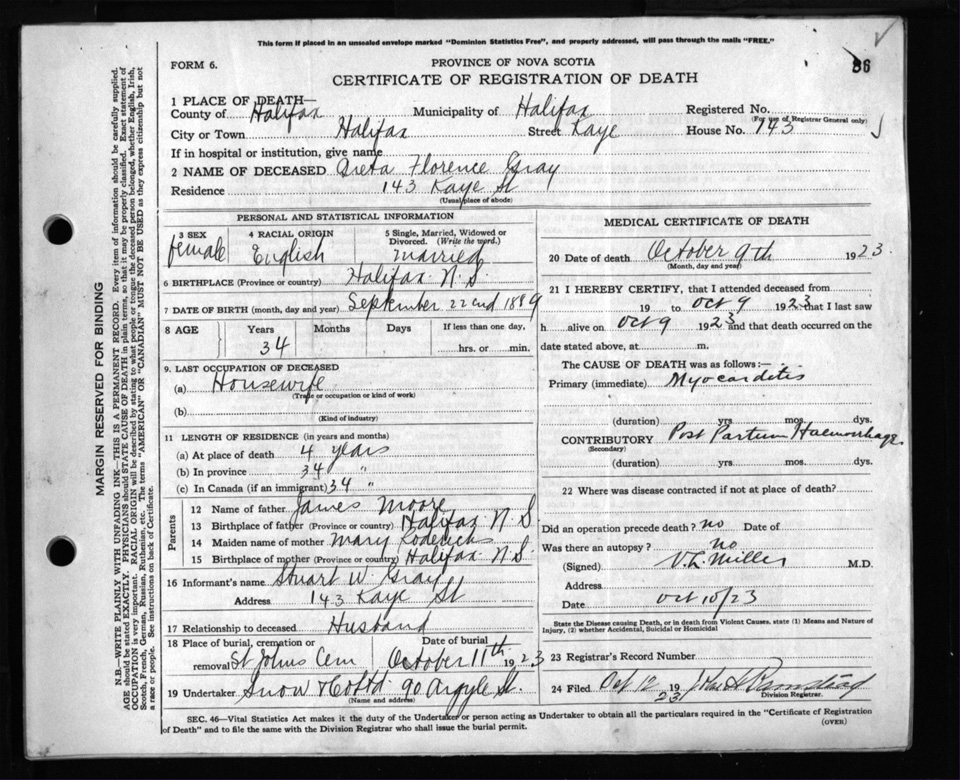 This form if placed in an unsealed envelope marked "Dominion Statistics Free", and properly addressed, will pass through the mails "FREE."
86
FORM 6.
PROVINCE OF NOVA SCOTIA
CERTIFICATE OF REGISTRATION OF DEATH
1 PLACE OF DEATH—
County of Halifax Municipality of Halifax Registered No.
(For use of Registrar General only)
City or Town Halifax Street Kaye House No. 143
If in hospital or institution, give name
2 NAME OF DECEASED Greta Florence Gray
Residence 143 Kaye St
(Usual place of abode)
PERSONAL AND STATISTICAL INFORMATION
3 SEX 4 RACIAL ORIGIN 5 Single, Married, Widowed or Divorced. (Write the word.)
female English married
6 BIRTHPLACE (Province or country) Halifax N.S.
7 DATE OF BIRTH (month, day and year) September 22nd 1889
8 AGE Years Months Days If less than one day,
34 hrs. or min.
9. LAST OCCUPATION OF DECEASED
(a) Housewife
(Trade or occupation or kind of work)
(b)
(Kind of industry)
11 LENGTH OF RESIDENCE (in years and months)
(a) At place of death 4 years
(b) In province 34 "
(c) In Canada (if an immigrant) 34 "
Parents
12 Name of father James Moore
13 Birthplace of father (Province or country) Halifax N.S
14 Maiden name of mother Mary
15 Birthplace of mother (Province or country) Halifax N.S.
16 Informant's name Stuart W Gray
Address 143 Kaye St
17 Relationship to deceased Husband
18 Place of burial, cremation or removal St Johns Cem
Date of burial October 11th 1923
19 Undertaker Snow & Co Ltd 90 Argyle St.
(Name and address)
MEDICAL CERTIFICATE OF DEATH
20 Date of death October 9th 1923.
(Month, day and year)
21 I HEREBY CERTIFY, that I attended deceased from
19 to Oct 9 1923 that I last saw
h alive on Oct 9 1923 and that death occurred on the
date stated above, at m.
The CAUSE OF DEATH was as follows:—
Primary (immediate) Myocarditis
(duration) yrs. mos. dys.
CONTRIBUTORY Post Partum Haemorrhage
(Secondary)
(duration) yrs. mos. dys.
22 Where was disease contracted if not at place of death?
Did an operation precede death? no Date of
Was there an autopsy? no
(Signed) V.L. Miller M.D.
Address
Date Oct 10/23
State the Disease causing Death, or in death from Violent Causes, state (1) Means and Nature of Injury, (2) whether Accidental, Suicidal or Homicidal
23 Registrar's Record Number
24 Filed Oct 12 1923
Division Registrar.
SEC. 46—Vital Statistics Act makes it the duty of the Undertaker or person acting as Undertaker to obtain all the particulars required in the "Certificate of Registration
of Death" and to file the same with the Division Registrar who shall issue the burial permit.
(OVER)
MARGIN RESERVED FOR BINDING
N.B.—WRITE PLAINLY WITH UNFADING INK—THIS IS A PERMANENT RECORD. Every item of information should be carefully supplied.
AGE should be stated EXACTLY. PHYSICIANS should STATE CAUSE OF DEATH in plain terms, so that it may be properly classified. Exact statement of
OCCUPATION is very important. RACIAL ORIGIN will be described by stating to what people or tongue the deceased person belonged, whether English, Irish,
Scotch, French, German, Russian, Ruthenian, etc. The terms "AMERICAN" OR "CANADIAN" MUST NOT BE USED as they express citizenship but not
a race or people. See instructions on back of Certificate.